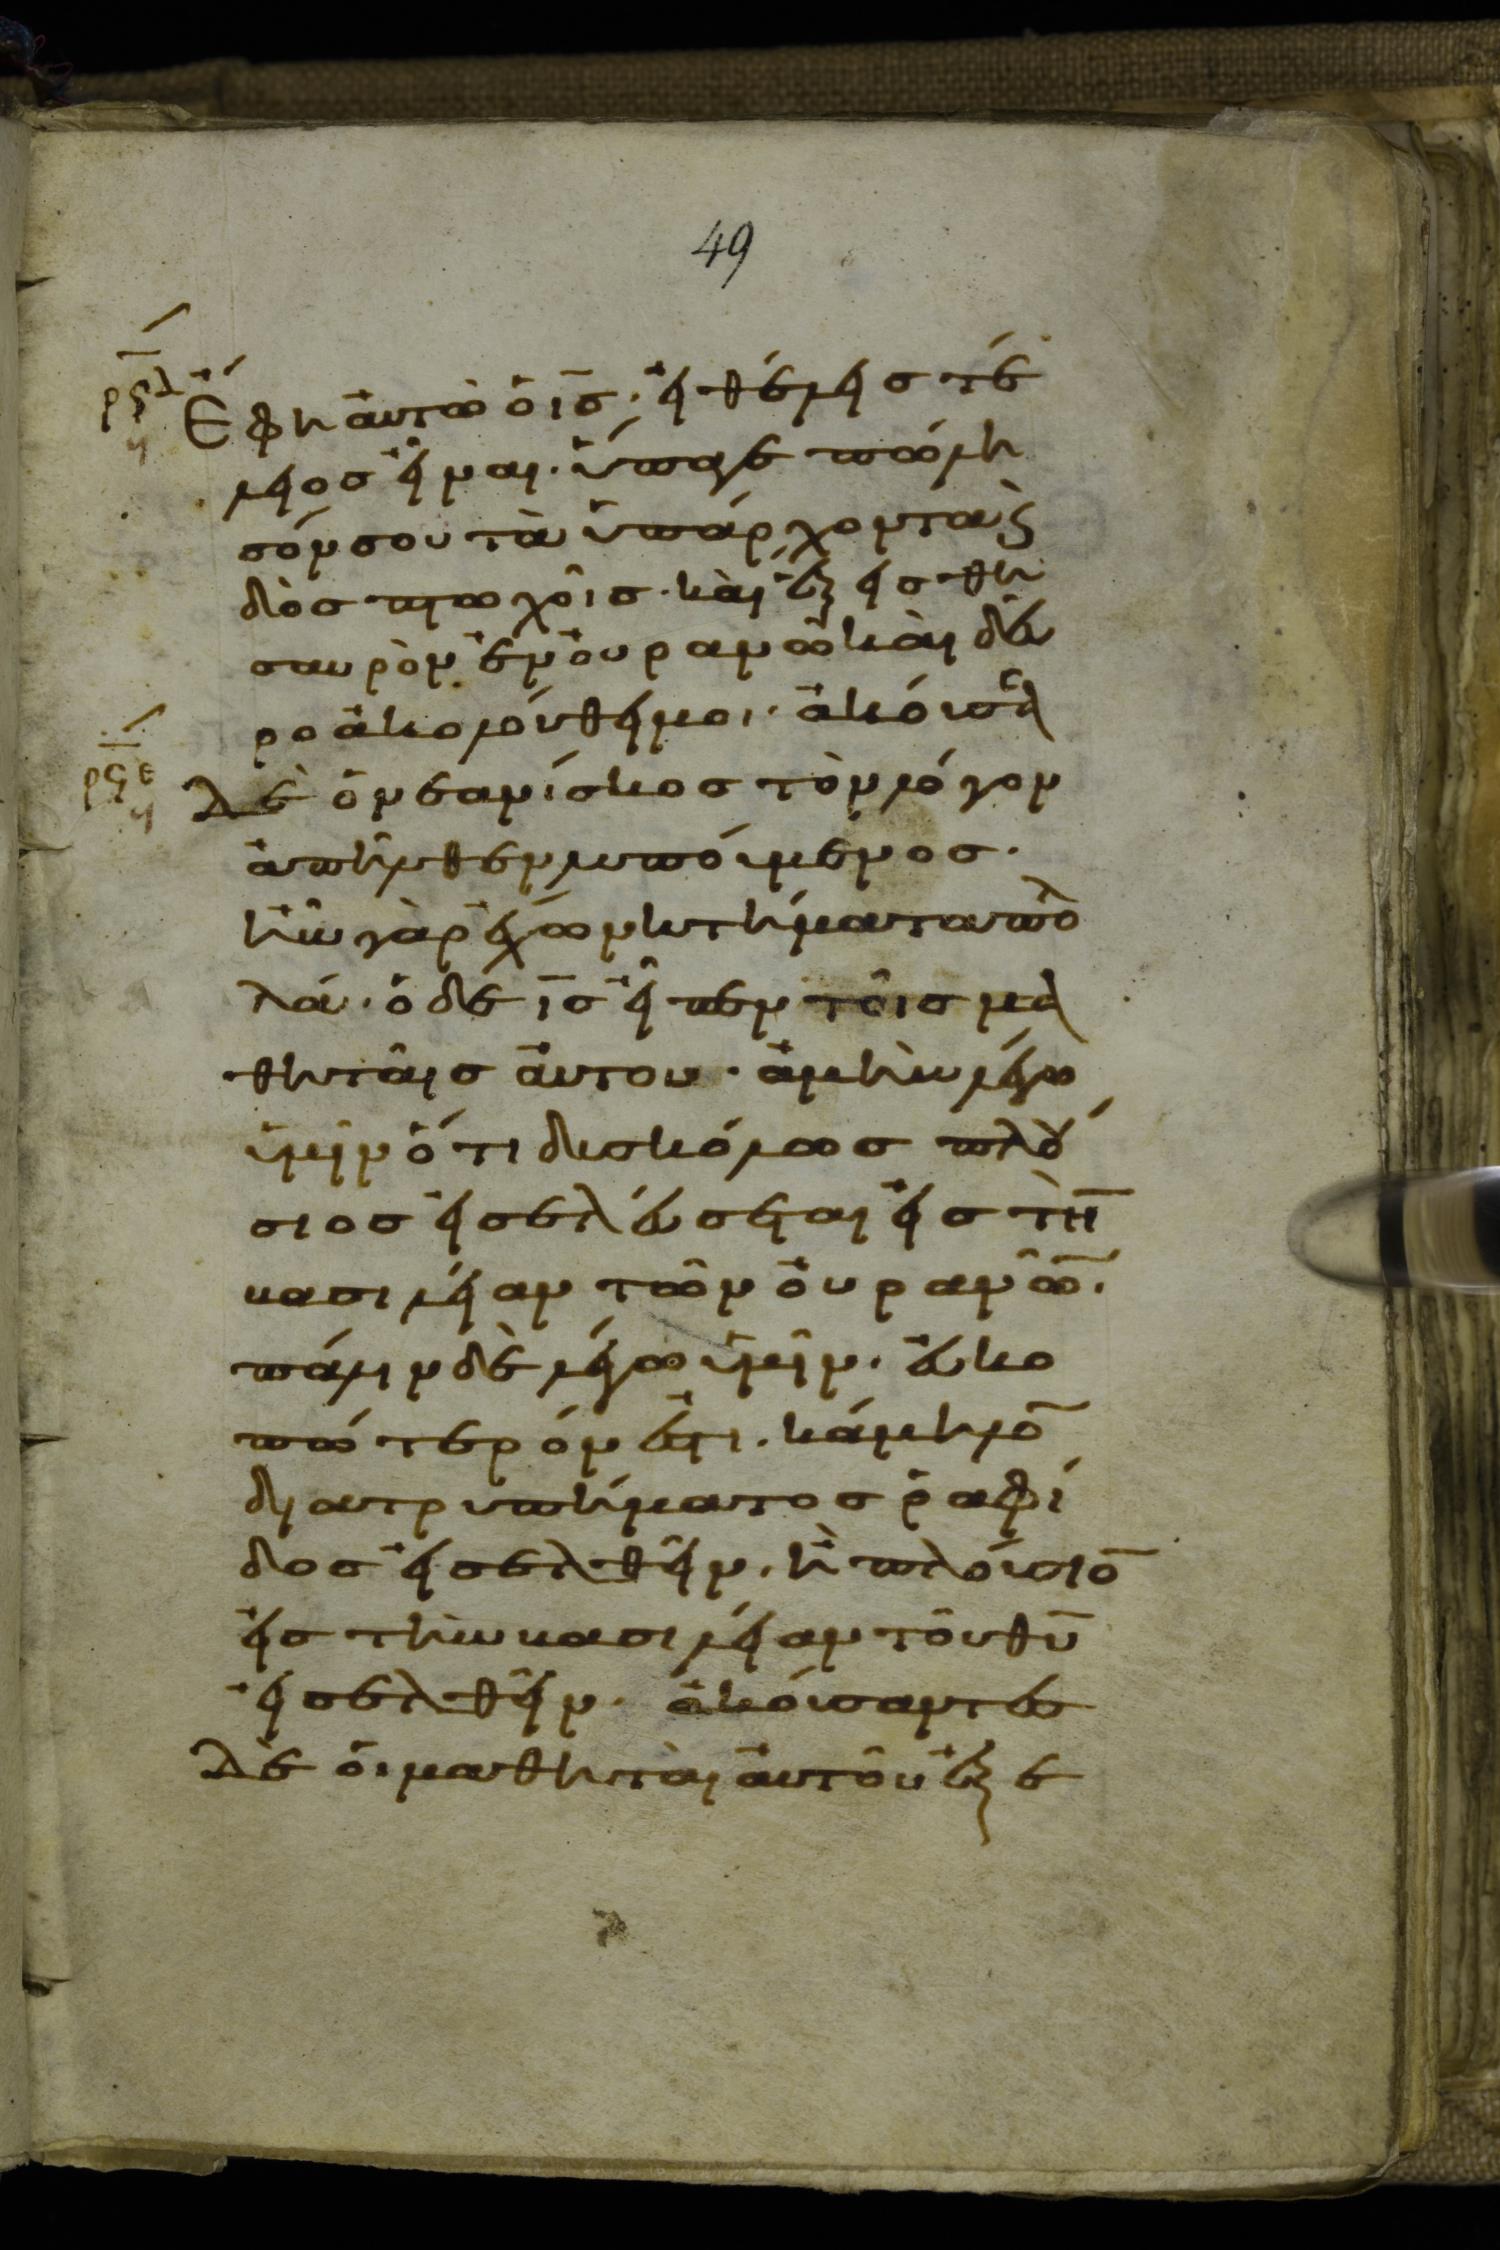 49
ρϟδ Ἔφη αὐτῶ ὁ ις̅· εἰ θέλεις τέ
λειος εἶναι· ὕπαγε πώλη
σόν σου τὰ ὑπάρχοντα ϗ
δὸς πτωχοῖς· καὶ ἕξεις θη
σαυρὸν ἐν οὐρανῶ καὶ δεῦ
ρο ἀκολούθει μοι· ἀκούσας
ρϟε δὲ ὁ νεανίσκος τὸν λόγον
ἀπῆλθεν λυπούμενος·
ἦν γὰρ ἔχων κτήματα πολ
λά· ὁ δὲ ις̅ εἶπεν τοῖς μα
θηταῖς αὐτου· ἀμὴν λέγω
ὑμῖν ὅτι δυσκόλως πλού
σιος εἰσελεύσεται εἰς τὴν
βασιλείαν τῶν οὐρανῶν·
πάλιν δὲ λέγω ὑμῖν· εὐκο
πώτερόν ἐστι· κάμηλον
διὰ τρυπήματος ῥαφί
δος εἰσελθεῖν· ἢ πλούσιον
εἰς τὴν βασιλείαν τοῦ θυ̅
εἰσελθεῖν· ἀκούσαντες
δὲ οἱ μαθηταὶ αὐτοῦ ἐξε